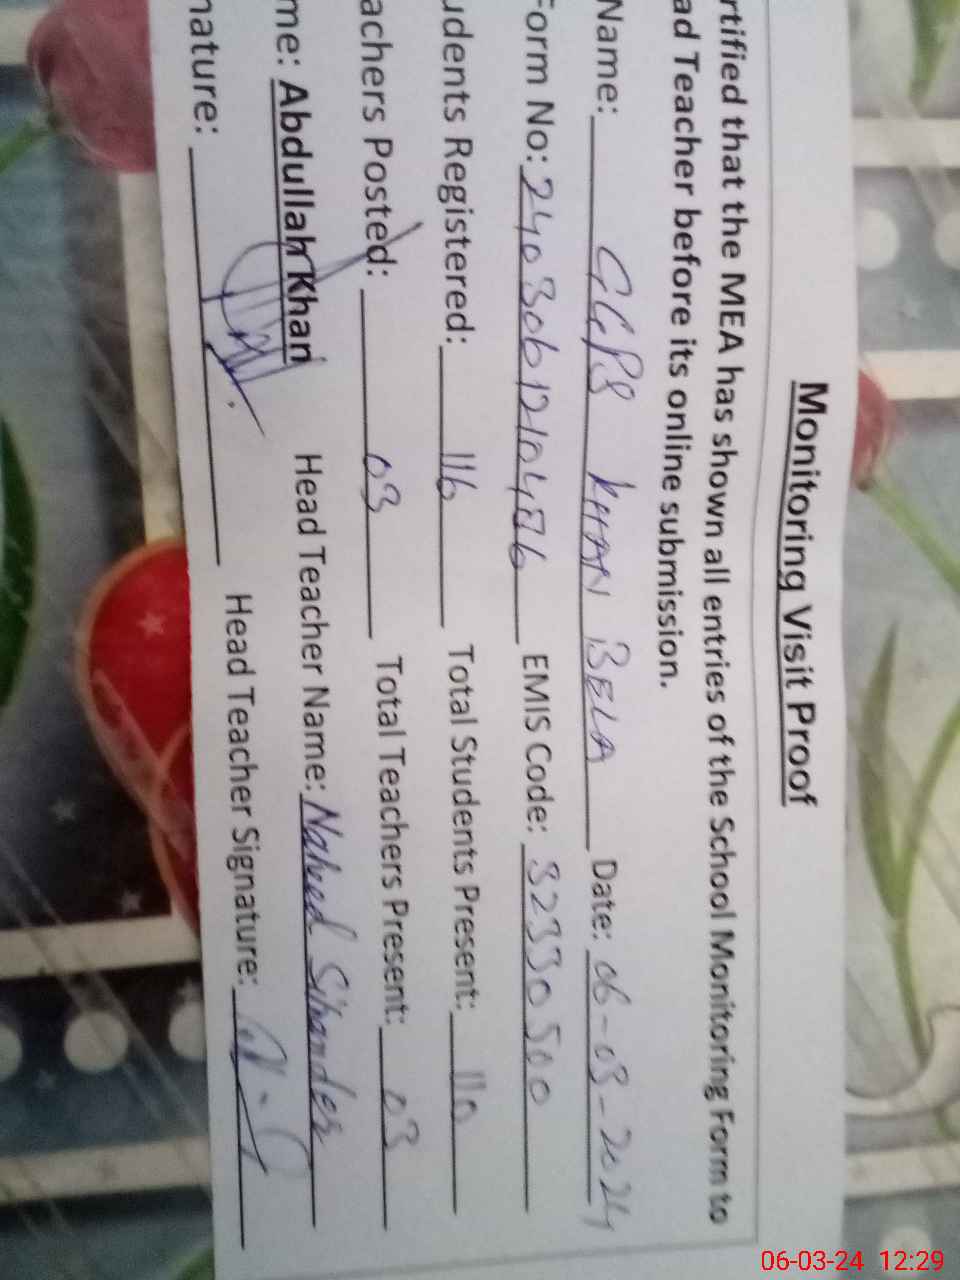 Monitoring Visit Proof
rtified that the MEA has shown all entries of the School Monitoring Form to
ad Teacher before its online submission.
Name: GGPS KHAN BELA Date: 06-03-2024
Form No: EMIS Code: 32330500
udents Registered: 116 Total Students Present: 110
achers Posted: 03 Total Teachers Present: 03
me: Abdullah Khan Head Teacher Name: Naheed Sikander
nature: Head Teacher Signature:
06-03-24 12:29